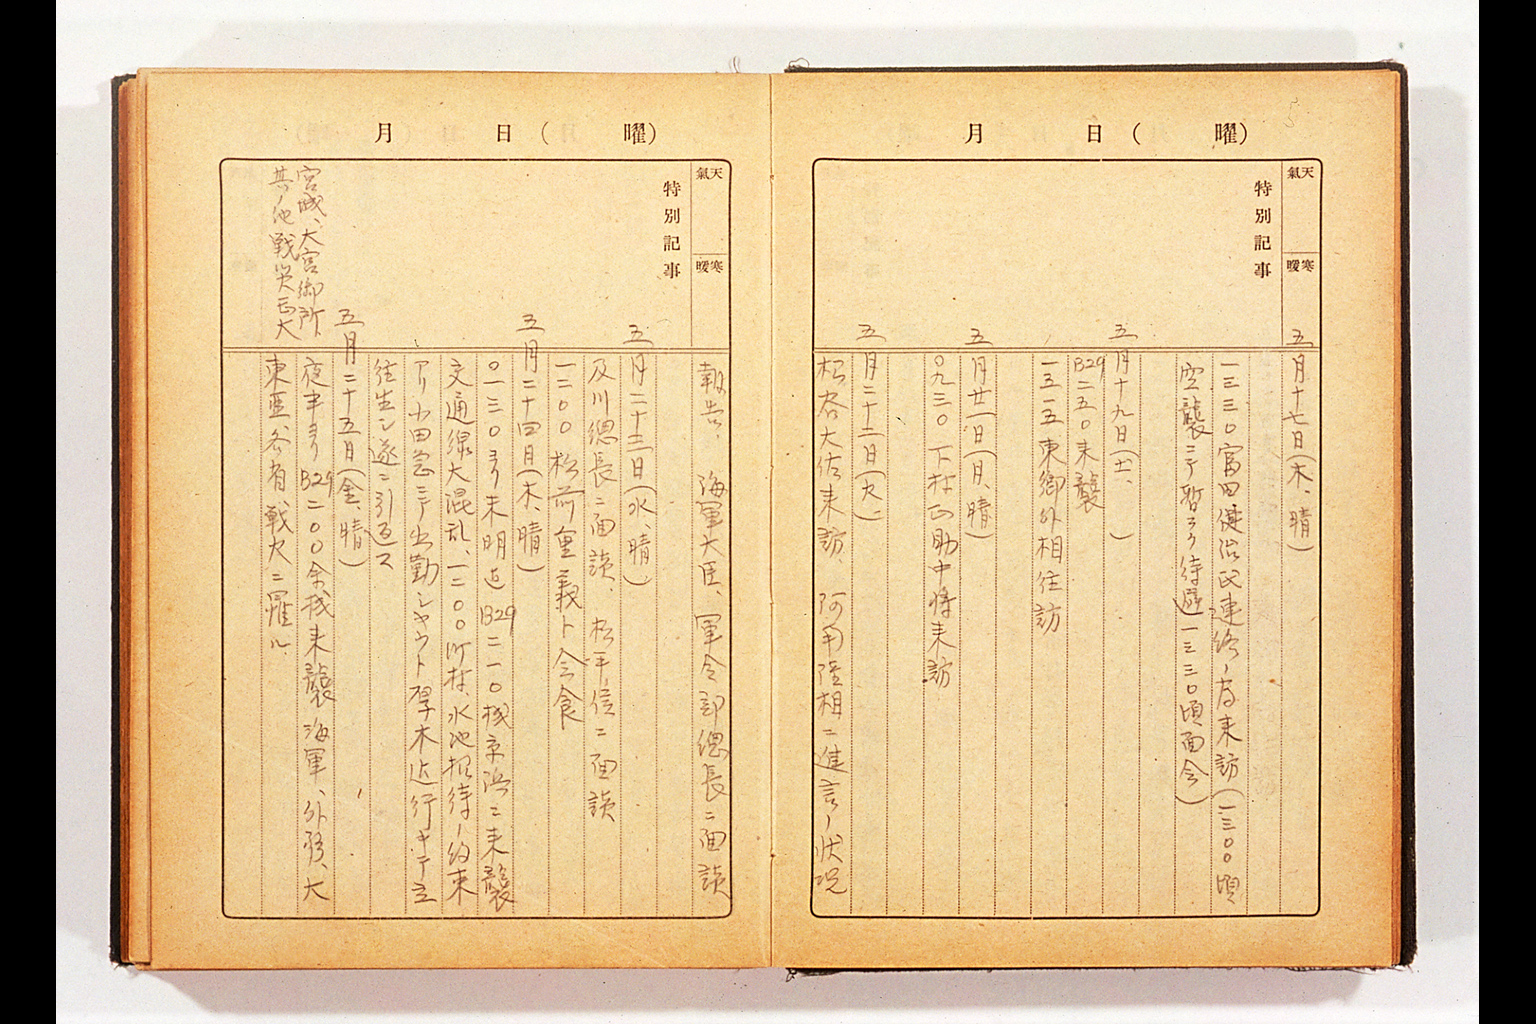 月 日(曜)
天氣
寒暖
特別記事
五月十七日(木、晴)
一三三〇富田健治氏連絡ノ為来訪(一三〇〇頃
空襲ニテ暫ラク待避一三三〇頃面会)
五月十九日(土、 )
B29二五〇来襲
一五一五東郷外相往訪
五月廿一日(月、晴)
〇九三〇下村正助中将来訪
五月二十二日(火、)
松谷大佐来訪、阿南陸相ニ進言ノ状況
月 日(曜)
天氣
寒暖
特別記事
報告、海軍大臣、軍令部總長ニ面談
五月二十三日(水、晴)
及川總長ニ面談、松平侯ニ面談
一二〇〇松前重義ト会食
五月二十四日(木、晴)
〇一三〇ヨリ未明迄B29二一〇機京浜ニ来襲
交通線大混乱、一二〇〇町村、水池招待ノ約束
アリ小田急ニテ出勤シヤウト厚木迄行キテ立
往生シ遂ニ引返ス
五月二十五日(金、晴)
夜半ヨリB29二〇〇余機来襲海軍、外務、大
東亜各省戦火ニ罹ル、
宮城、大宮御所、
其ノ他戦災甚大